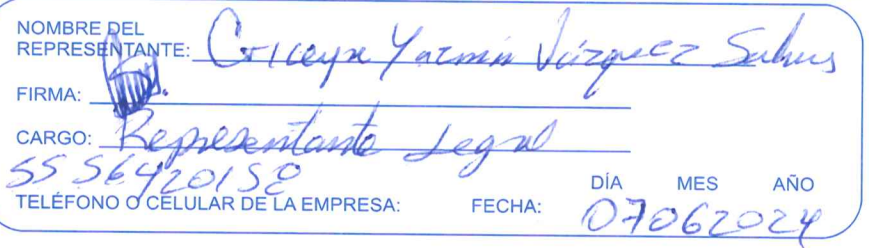 NOMBRE DEL
REPRESENTANTE: Yazmin Vázquez
FIRMA:
CARGO: Representante Legal
55 56420158
TELÉFONO O CELULAR DE LA EMPRESA: FECHA: DÍA MES AÑO
07062024